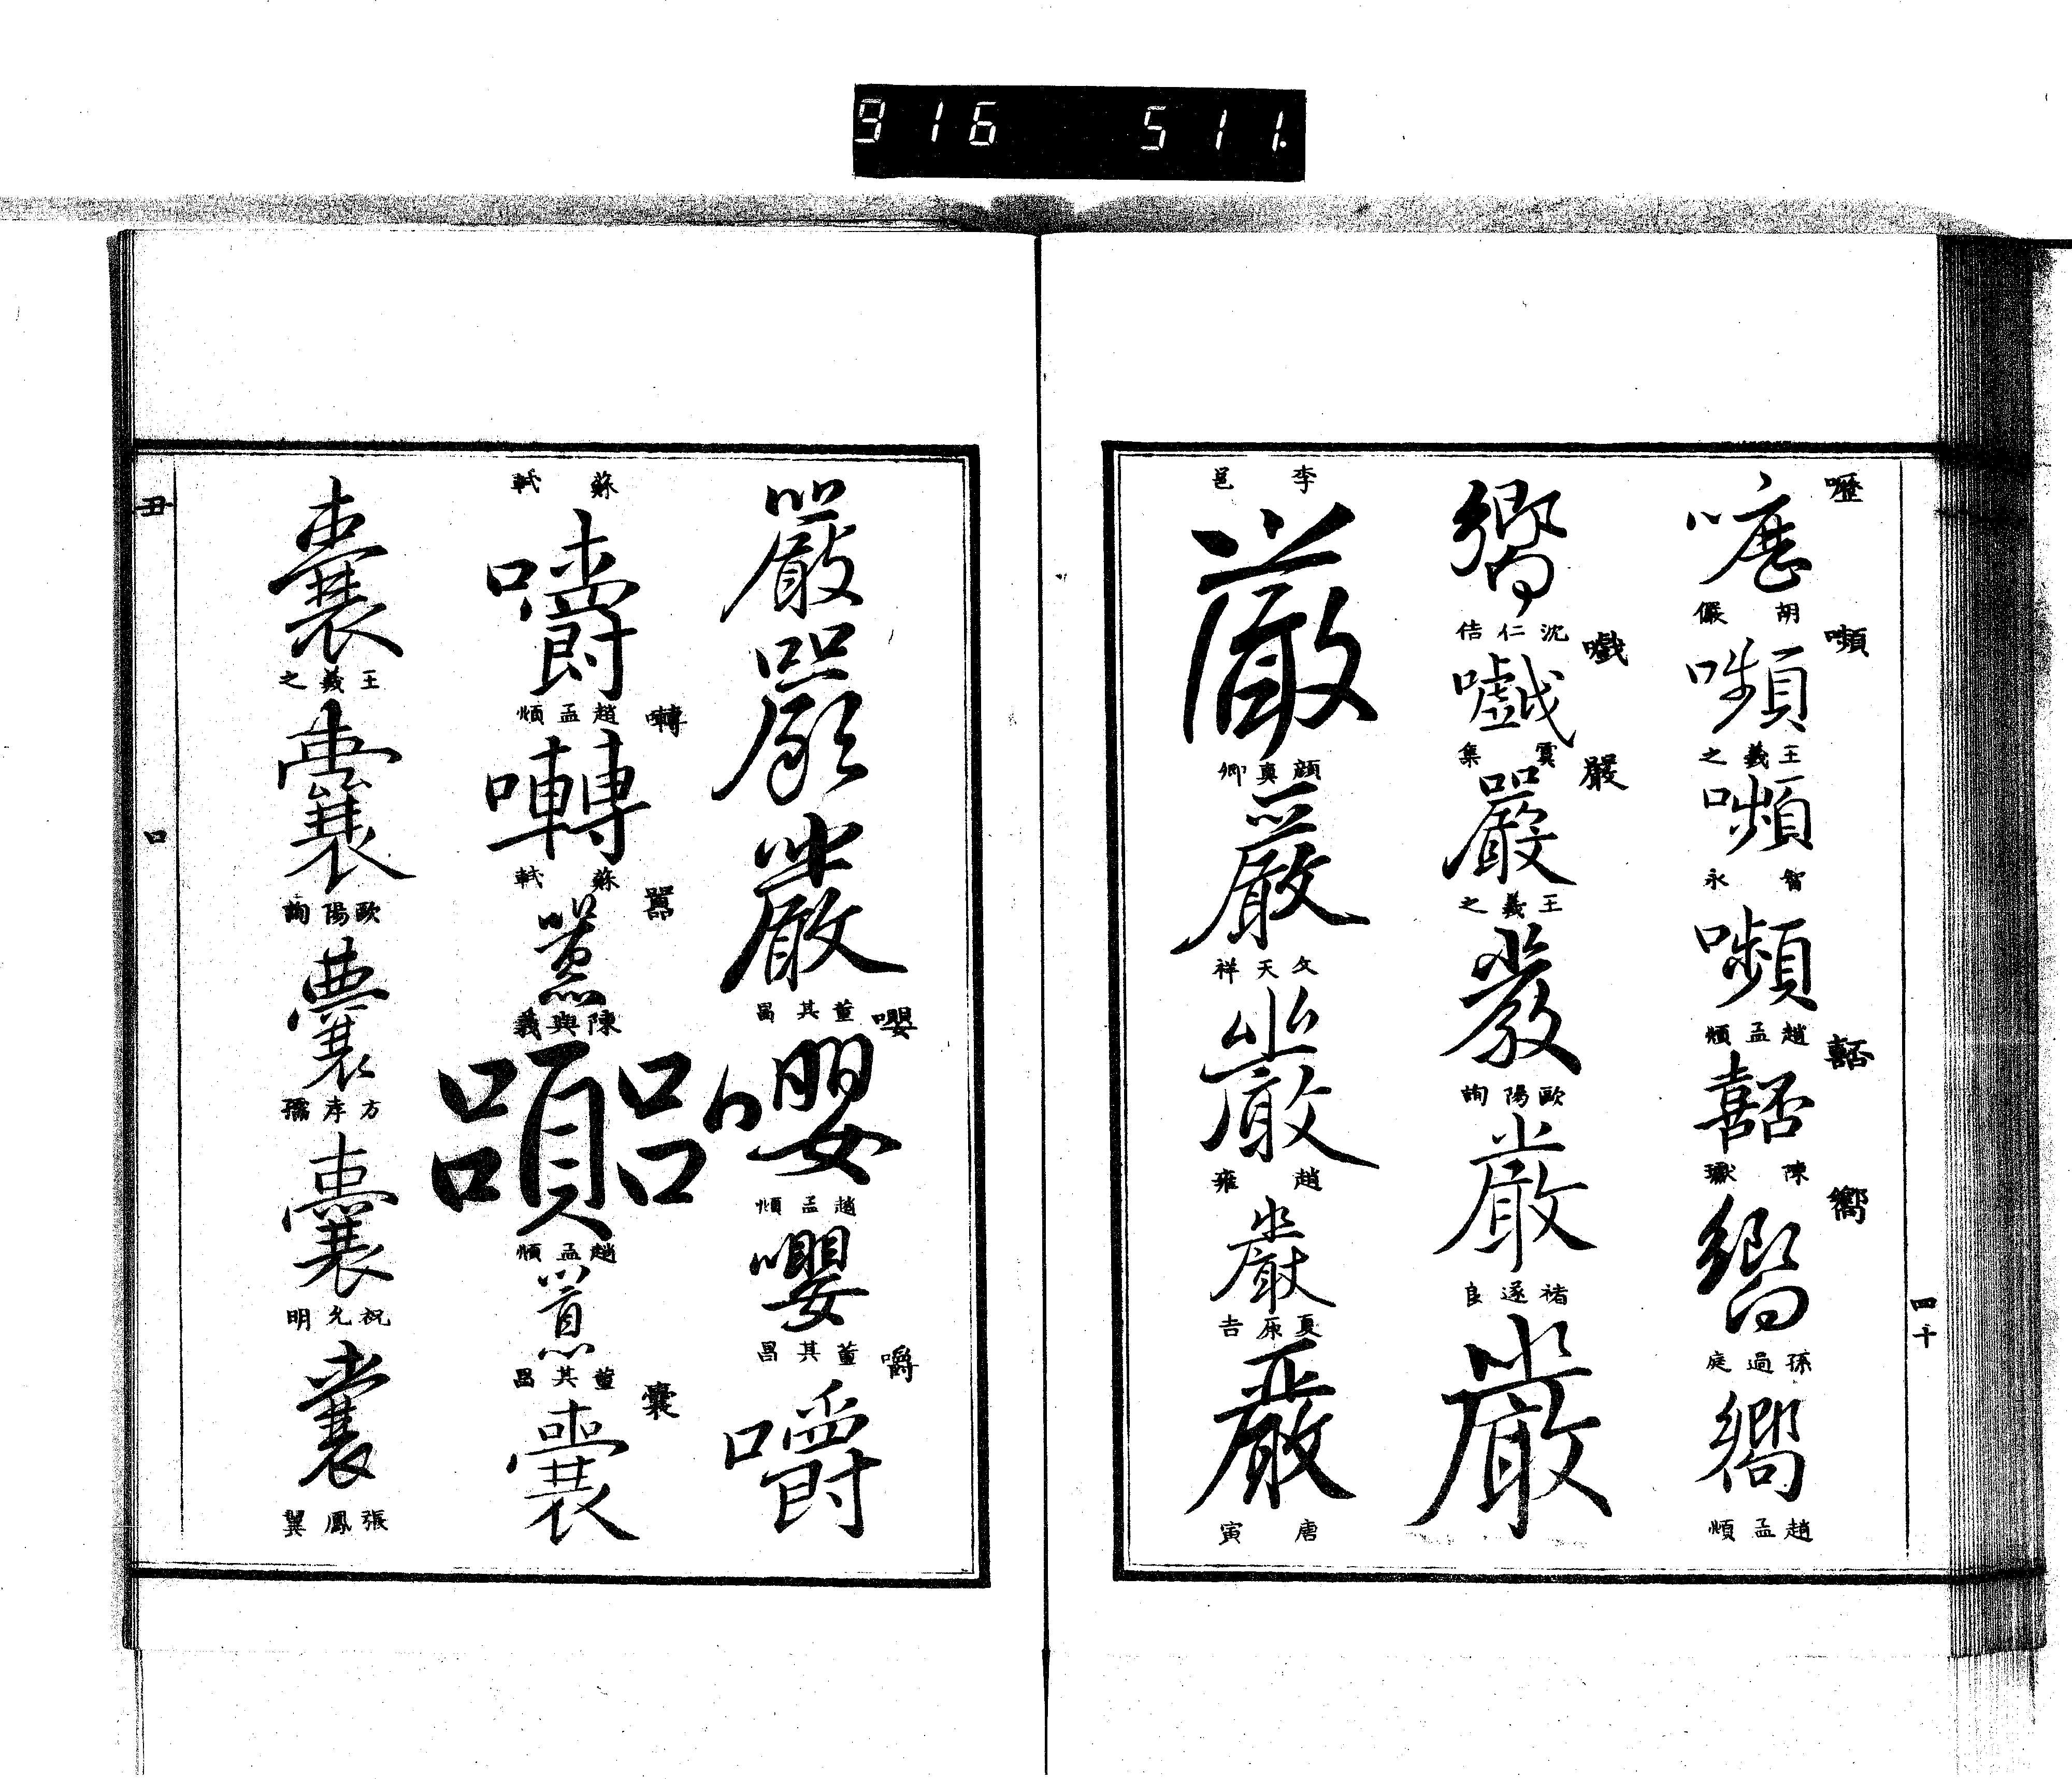 916 511.
四十
嚦
嚦
胡儼
嚬
嚬
王羲之
嚬
智永
嚬
趙孟頫
嚭
嚭
陳獻
嚮
嚮
孫過庭
嚮
趙孟頫
嚮
沈仁佶
嚱
嚱
虞集
嚴
嚴
王羲之
嚴
歐陽詢
嚴
褚遂良
嚴
李邕
嚴
顏真卿
嚴
文天祥
嚴
趙雍
嚴
夏原吉
嚴
唐寅
嚴
嚴
嚴
董其昌
嚶
嚶
趙孟頫
嚶
董其昌
嚼
嚼
蘇軾
嚼
趙孟頫
囀
囀
蘇軾
囂
囂
陳與義
囂
趙孟頫
囂
董其昌
囊
囊
囊
王羲之
囊
歐陽詢
囊
方孝孺
囊
祝允明
囊
張鳳翼
丑
口